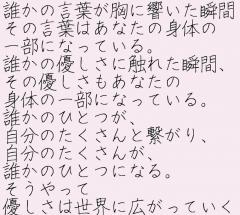 誰かの言葉が胸に響いた瞬間
その言葉はあなたの身体の
一部になっている。
誰かの優しさに触れた瞬間、
その優しさもあなたの
身体の一部になっている。
誰かのひとつが、
自分のたくさんと繋がり、
自分のたくさんが、
誰かのひとつになる。
そうやって
優しさは世界に広がっていく